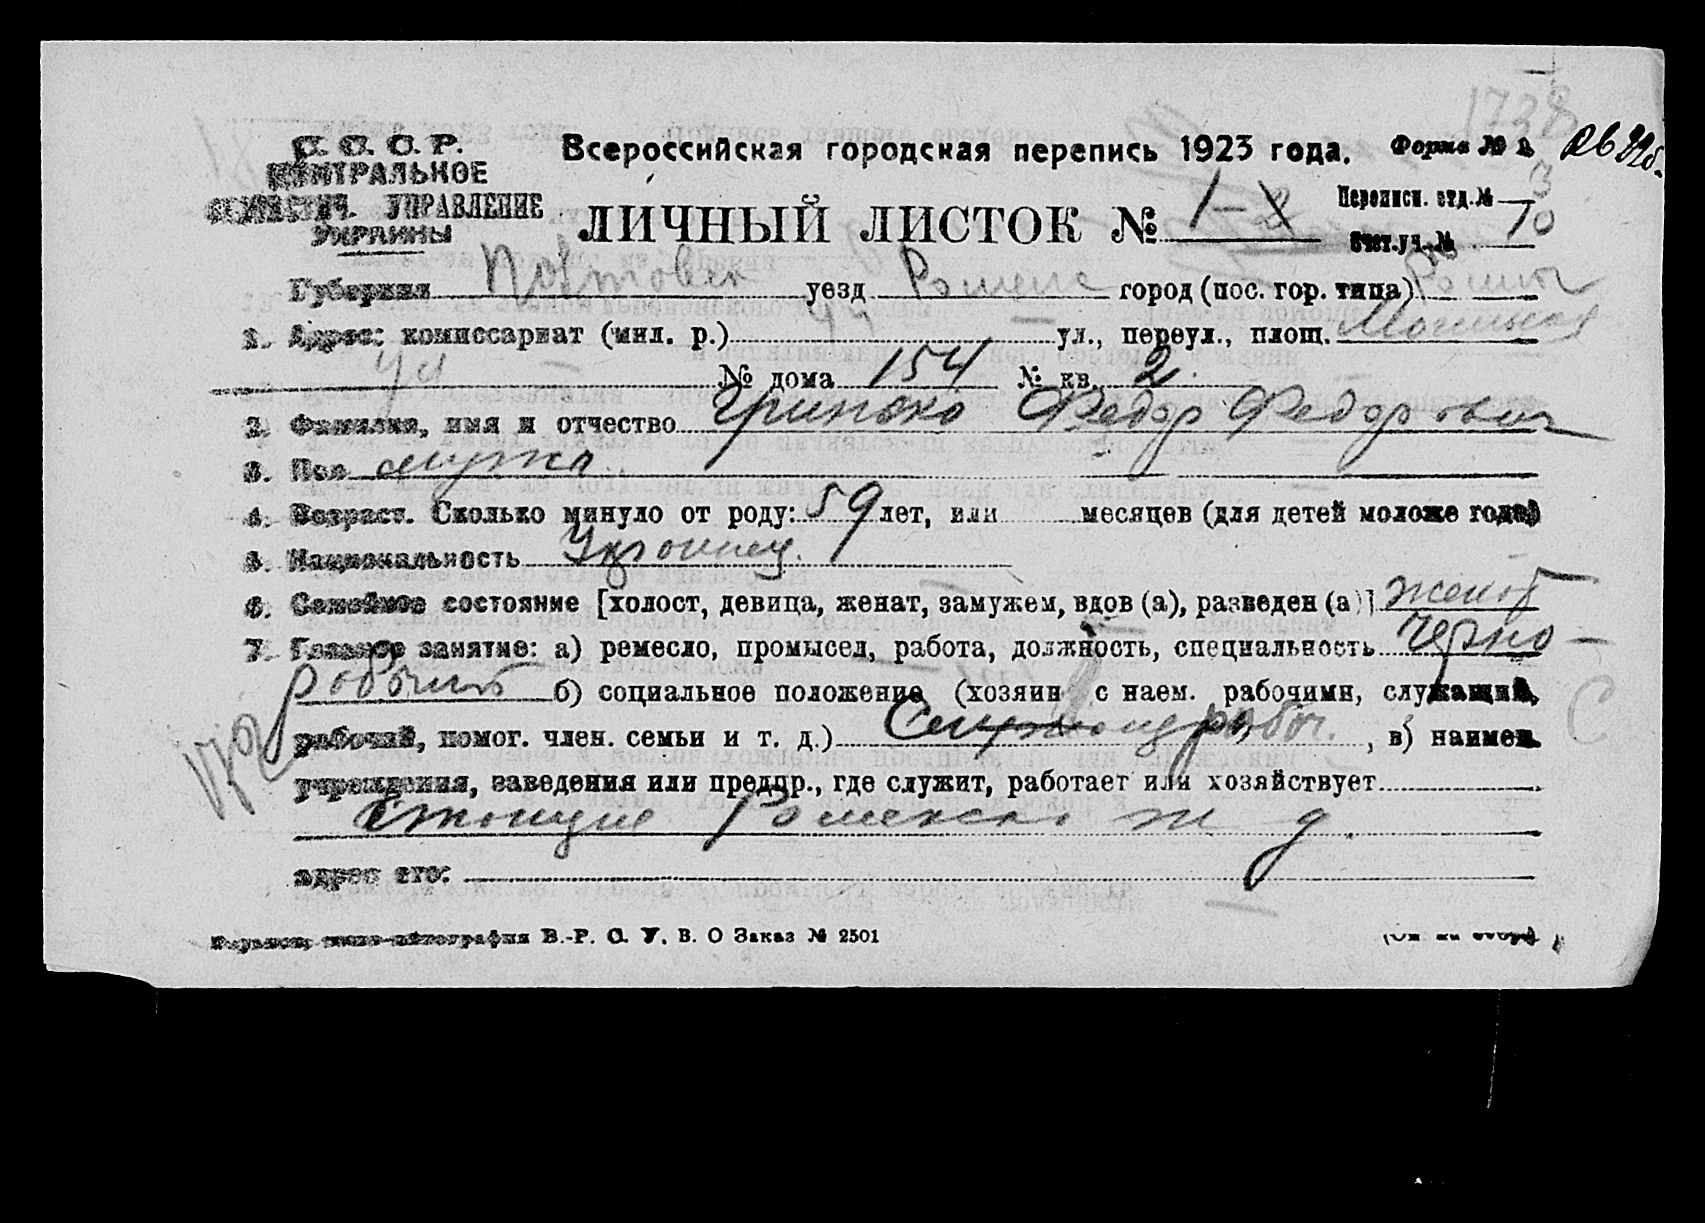 С. С. С. Р.
ЦЕНТРАЛЬНОЕ
СТАТИСТИЧ. УПРАВЛЕНИЕ
УКРАИНЫ
Всероссийская городская перепись 1923 года.
Форма № 2.
1728
ЛИЧНЫЙ ЛИСТОК № 1-2
Переписн. отд. № 3
Счет. уч. № 10
Губерния уезд Ромене город (пос. гор. типа) Ромны
1. Адрес: комиссариат (мил. р.) ул., переул., площ.
№ дома 154 № кв. 2.
2. Фамилия, имя и отчество Гринско Федор Федорович
3. Пол мужск
4. Возраст. Сколько минуло от роду: 59 лет, или месяцев (для детей моложе года)
5. Национальность Украинец.
6. Семейное состояние [холост, девица, женат, замужем, вдов (а), разведен (а)] женат
7. Главное занятие: а) ремесло, промысел, работа, должность, специальность Черно-
рабочий б) социальное положение (хозяин с наем. рабочими, служащий,
рабочий, помог. член. семьи и т. д.) Служащ рабоч. , в) наимен.
учреждения, заведения или предпр., где служит, работает или хозяйствует
Станция Роменско ж д.
адрес его:
Харьков, типо-литография В.-Р. С. У. В. О Заказ № 2501